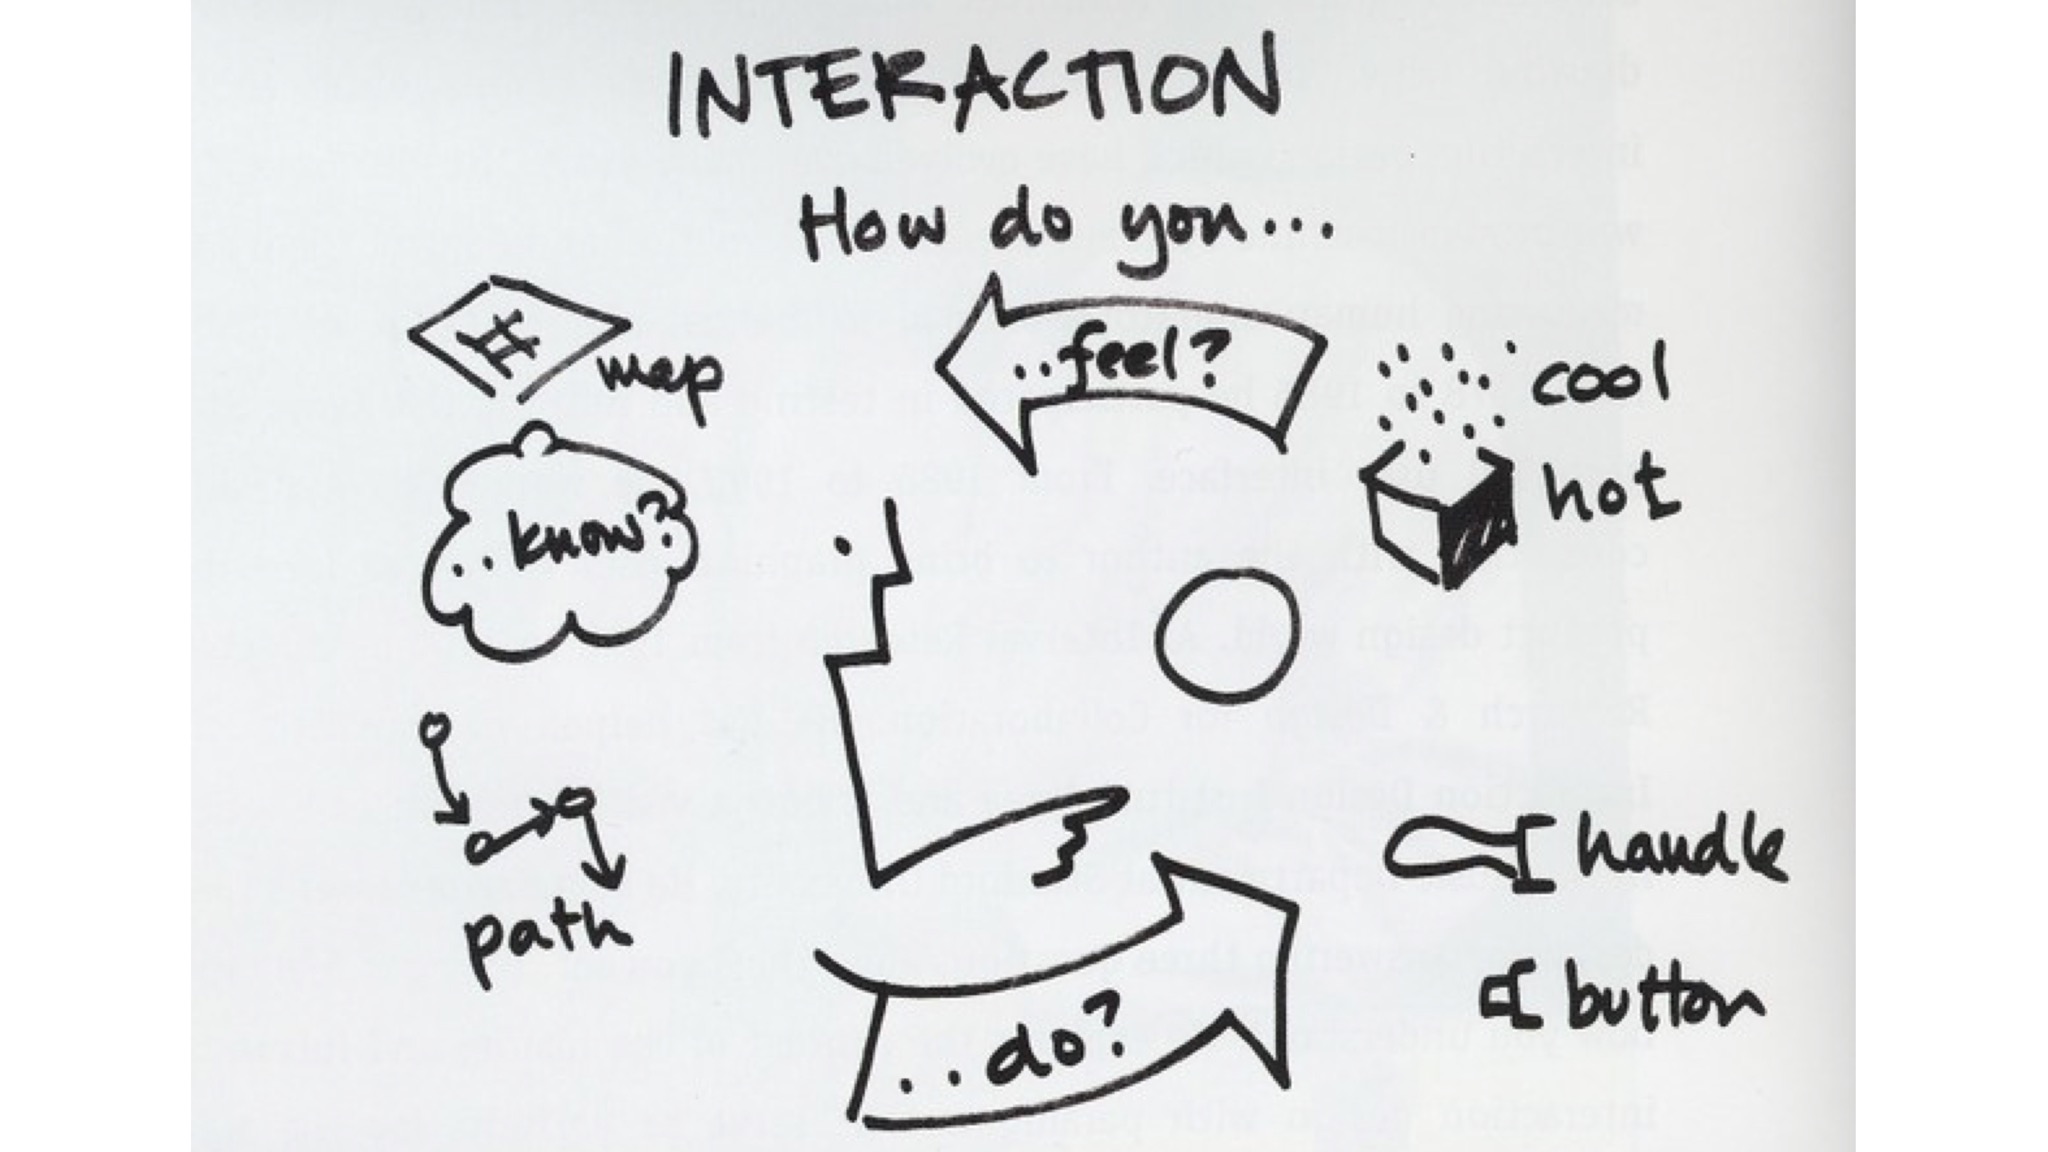 INTERACTION
How do you...
map
..feel?
cool
hot
..know?
path
handle
button
..do?